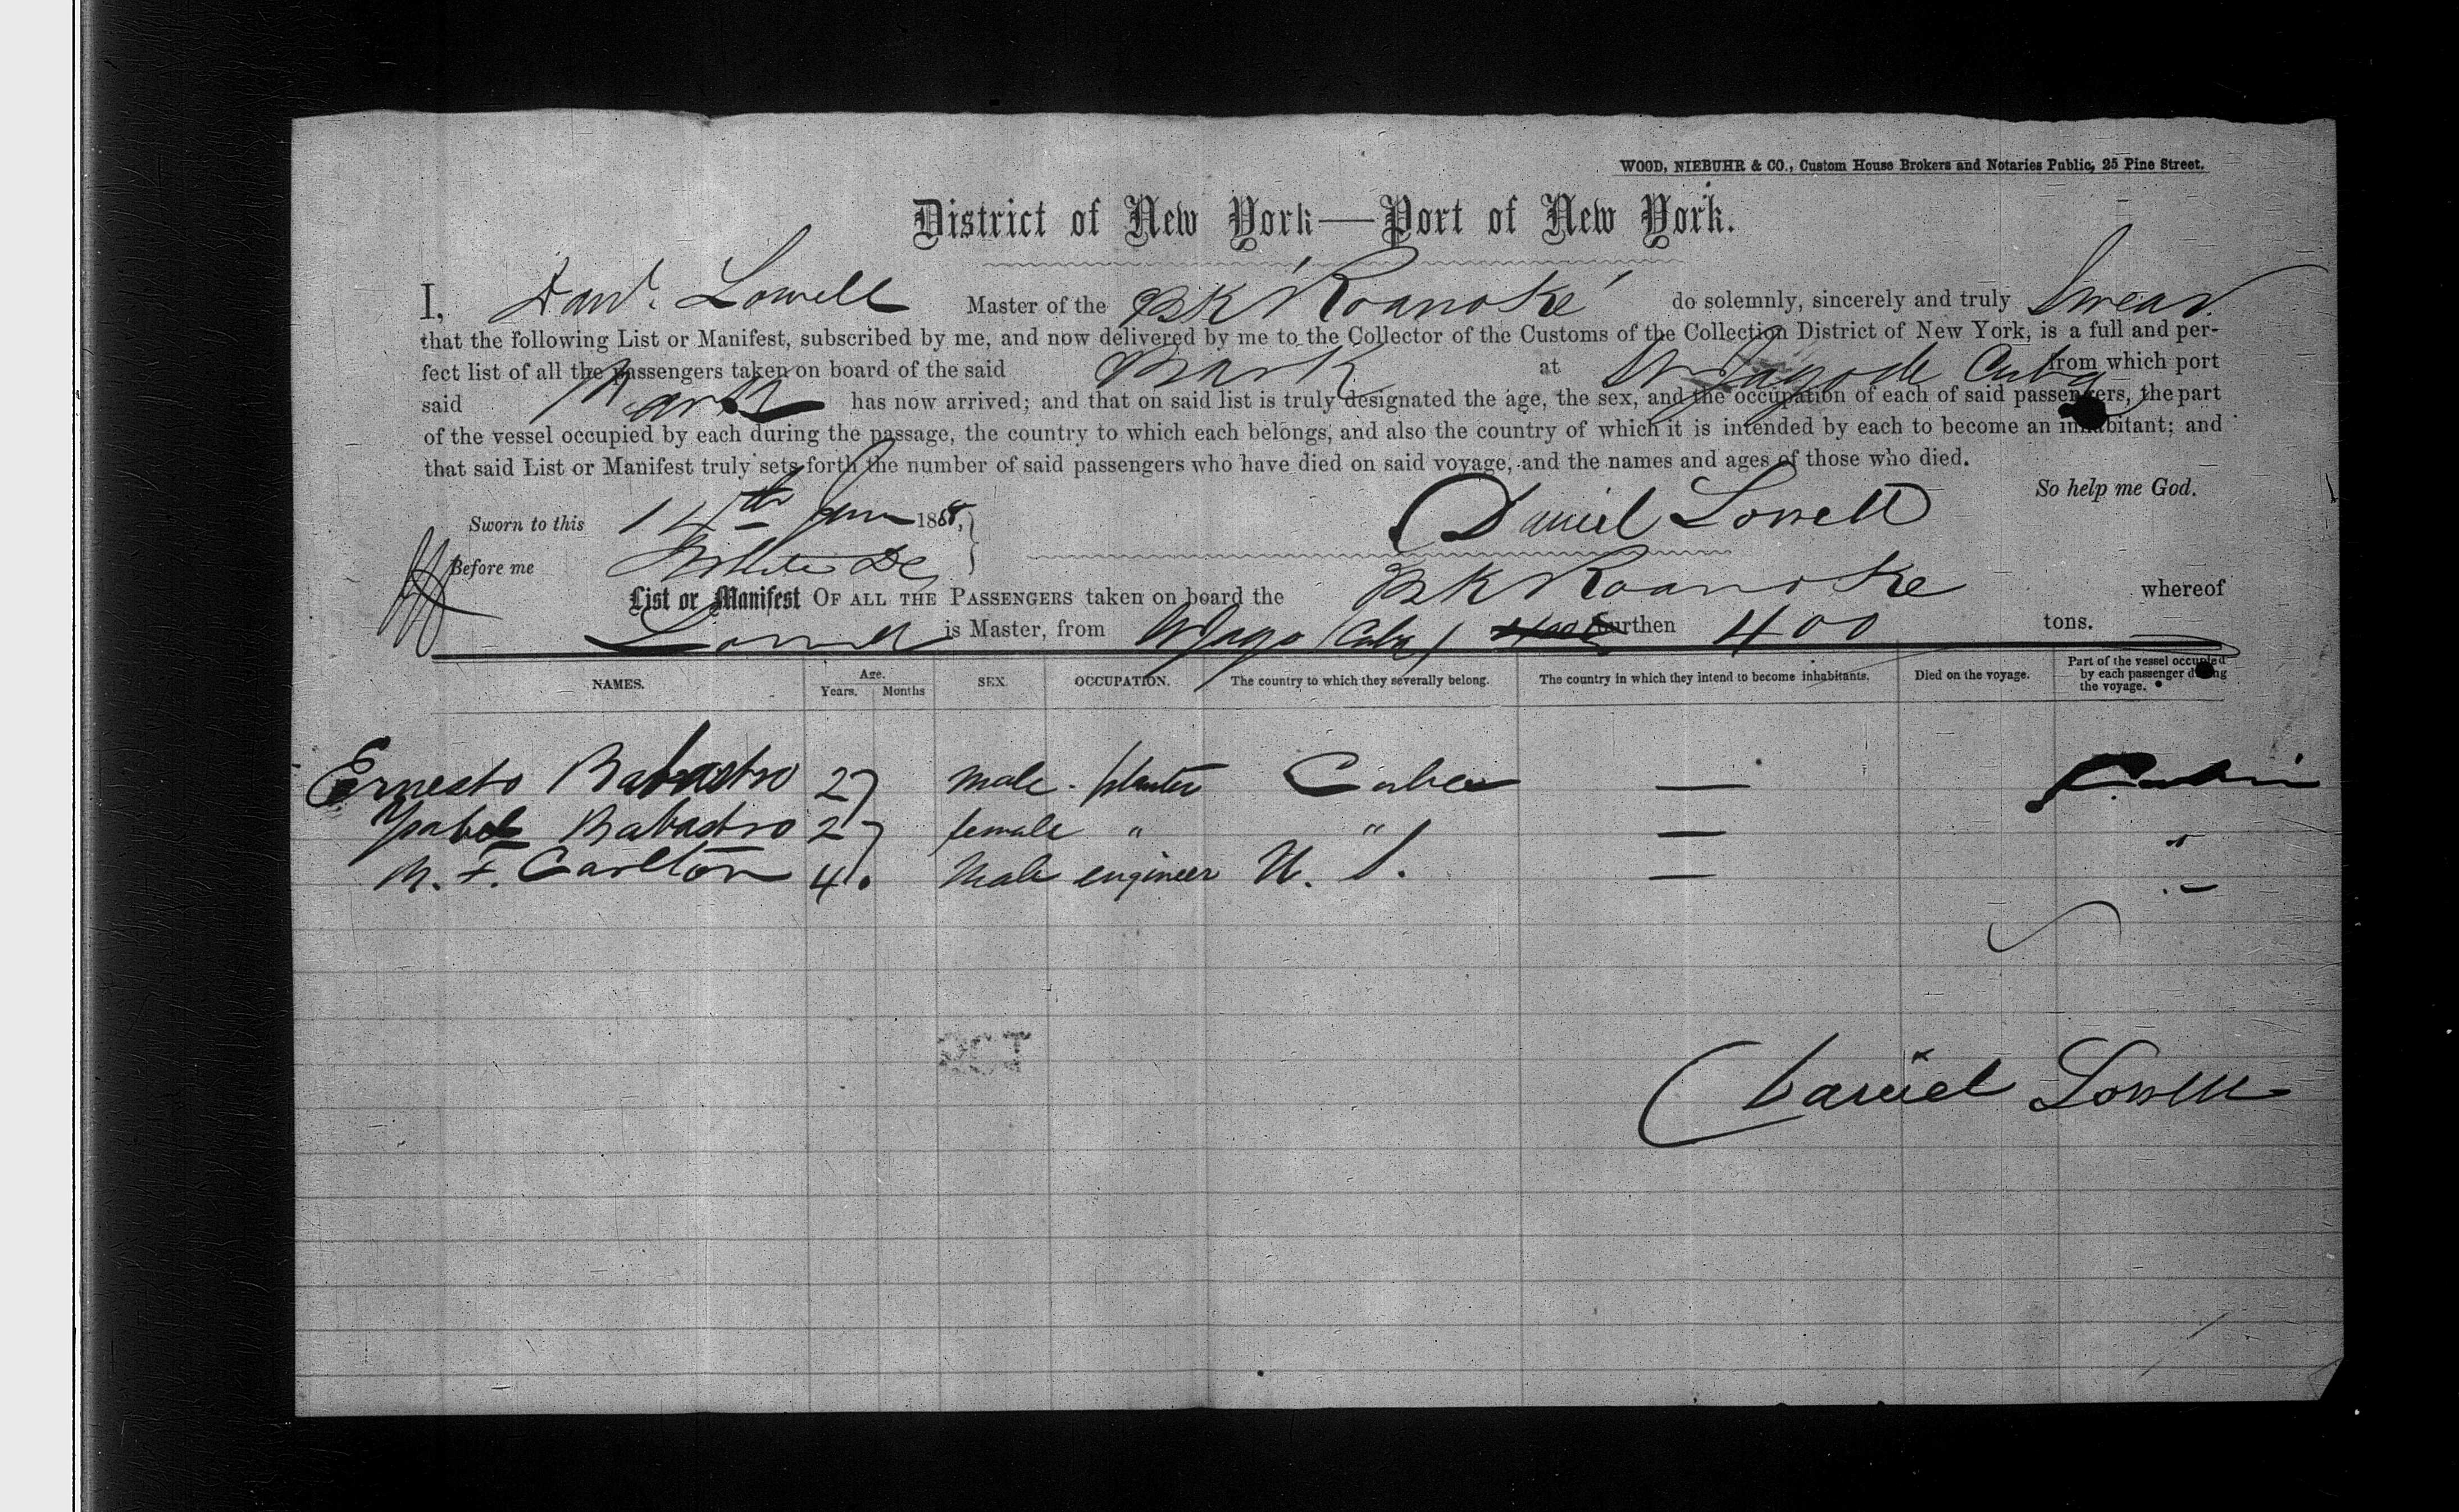 WOOD, NIEBUHR & CO., Custom House Brokers and Notaries Public, 25 Pine Street.
District of New York—Port of New York.
I, Danl. Lowell Master of the Bk "Roanoke" do solemnly, sincerely and truly Swear
that the following List or Manifest, subscribed by me, and now delivered by me to the Collector of the Customs of the Collection District of New York, is a full and per-
fect list of all the passengers taken on board of the said Bark at St Jago de Cuba from which port
said Bark has now arrived; and that on said list is truly designated the age, the sex, and the occupation of each of said passengers, the part
of the vessel occupied by each during the passage, the country to which each belongs, and also the country of which it is intended by each to become an inhabitant; and
that said List or Manifest truly sets forth the number of said passengers who have died on said voyage, and the names and ages of those who died.
So help me God.
Sworn to this 14th Jun 1868, Daniel Lowell
Before me
List or Manifest OF ALL THE PASSENGERS taken on board the Bk Roanoke whereof
Lowell is Master, from St Jago (Cuba) burthen 400 tons.
NAMES. Age. Years. Months SEX. OCCUPATION. The country to which they severally belong. The country in which they intend to become inhabitants. Died on the voyage. Part of the vessel occupied by each passenger during the voyage.
Ernesto Babastro 27 Male planter Cuba — Cabin
Ysabel Babastro 27 female " " — "
M. F. Carlton 40 Male engineer U. S. — "
Daniel Lowell